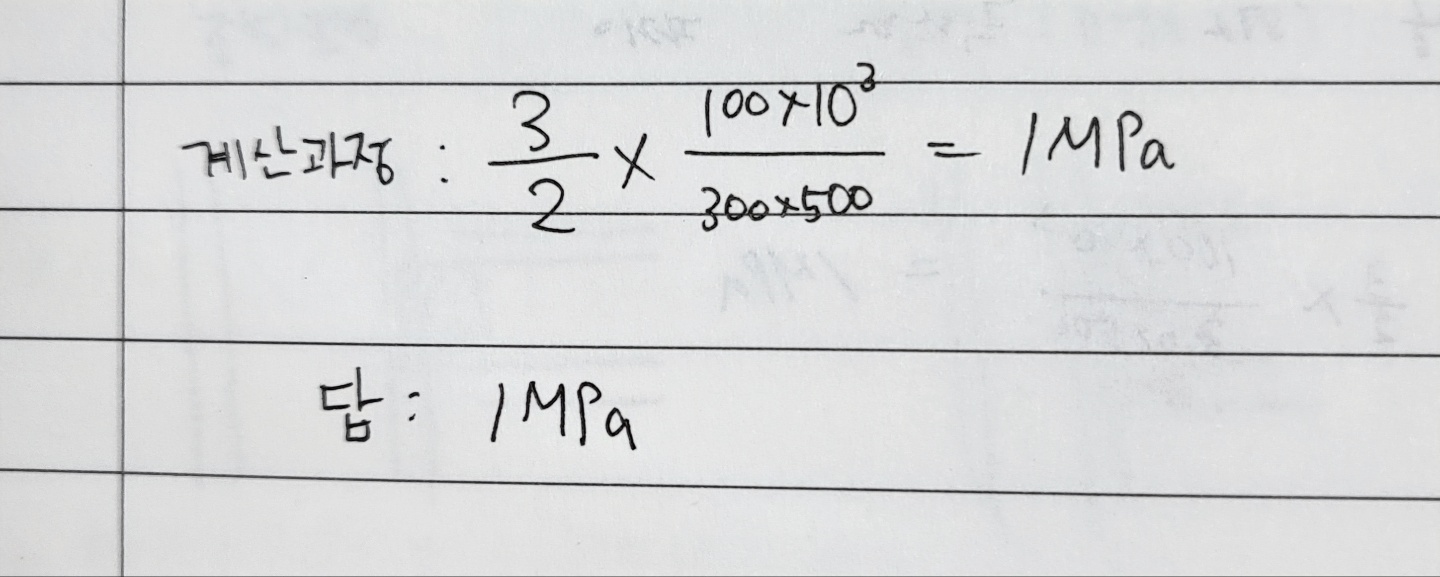 계산과정 : 3/2 × 100×10³/300×500 = 1MPa
답 : 1MPa